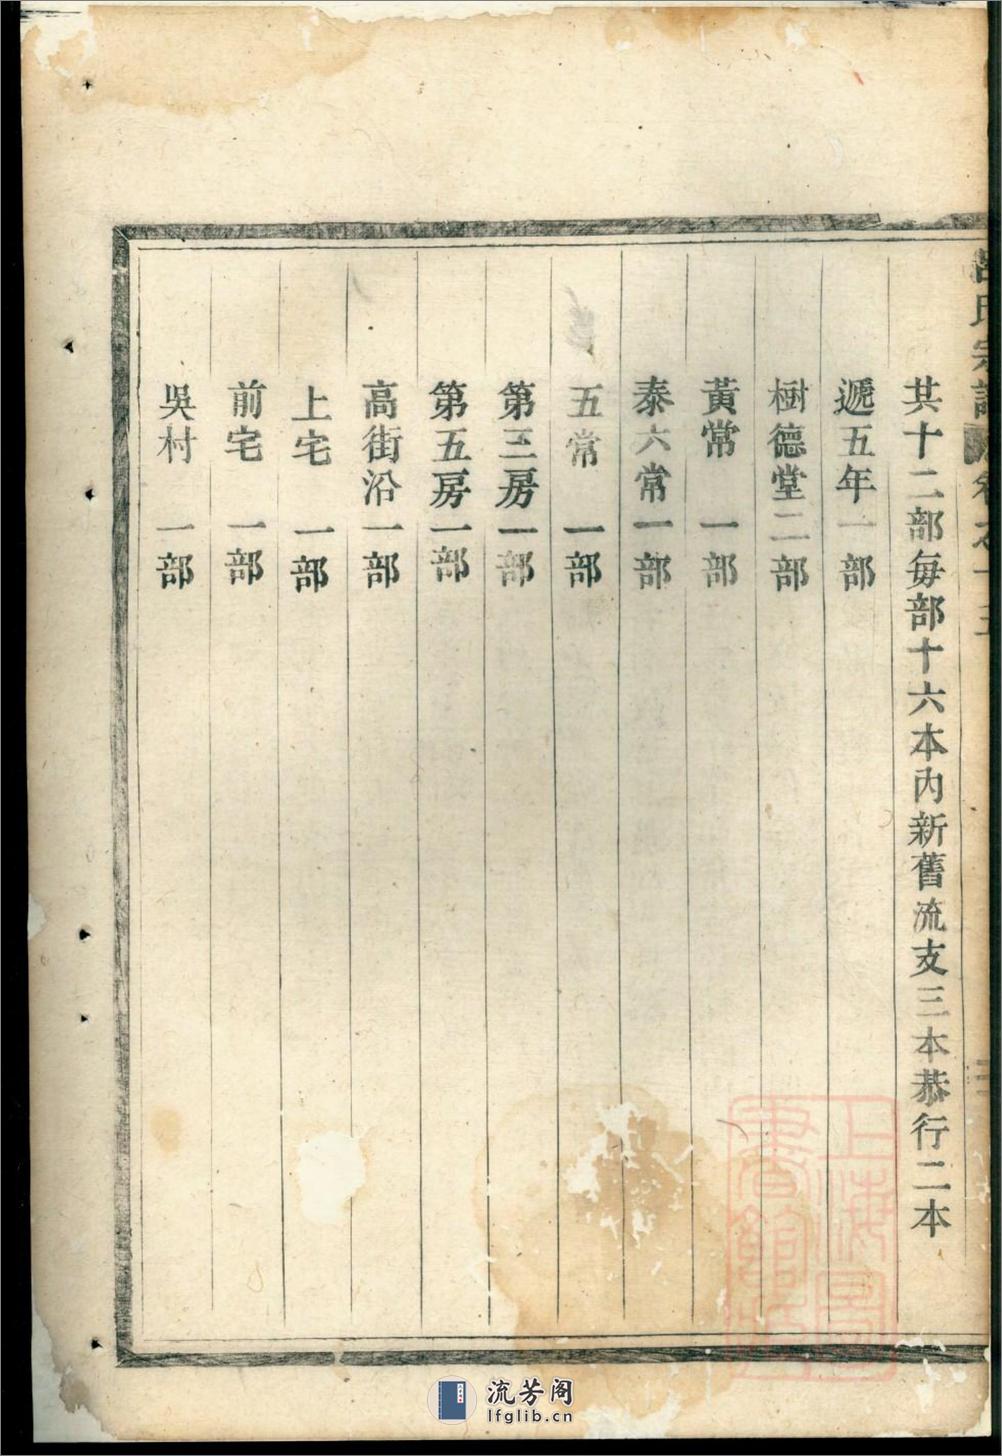 呂氏宗譜
卷之十五
其十二部每部十六本內新舊流支三本恭行二本
遞五年一部
樹德堂二部
黃常一部
泰六常一部
五常一部
第三房一部
第五房一部
高街沿一部
上宅一部
前宅一部
吳村一部
上海圖書館藏
流芳阁
lfglib.cn